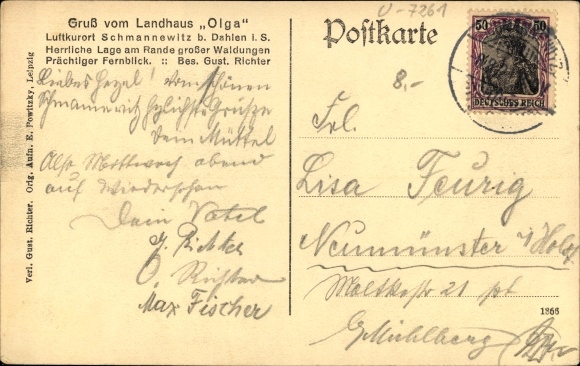 Gruß vom Landhaus „Olga"
Luftkurort Schmannewitz b. Dahlen i. S.
Herrliche Lage am Rande großer Waldungen
Prächtiger Fernblick. :: Bes. Gust. Richter
Liebes Hezel! Vom schönen
Schmannewitz herzlichste Grüsze
Dein Muttel
Also Mittwoch abend
auf Wiedersehen
Dein Vatel
G. Richter
O. Richter
Max Fischer
Verl. Gust. Richter. Orig. Aufn. E. Powitzky, Leipzig
U-7261
Postkarte
8.-
50 50
DEUTSCHES REICH
Frl.
Lisa Feurig
Neumünster i/Holst
Moltkestr 21 pt
1866